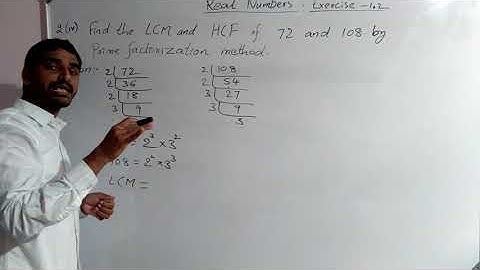 Real Numbers: Exercise-1.2
2(iv) Find the LCM and HCF of 72 and 108 by
Prime factorization method.
2 72
2 36
2 18
3 9
2 108
2 54
3 27
3 9
3
= 2³ × 3²
108 = 2² × 3³
LCM =